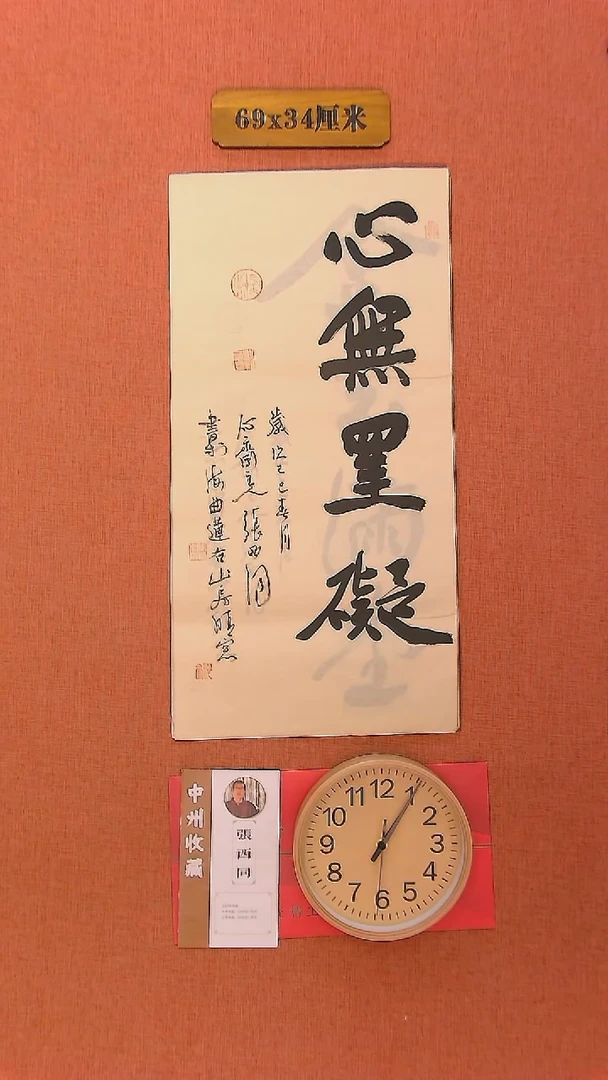 69x34厘米
心無罣礙
歲次乙巳春月
心齋主張西同
書於海曲蓮右山房晴窗
中州收藏
張西同
12
1
2
3
4
5
6
7
8
9
10
11